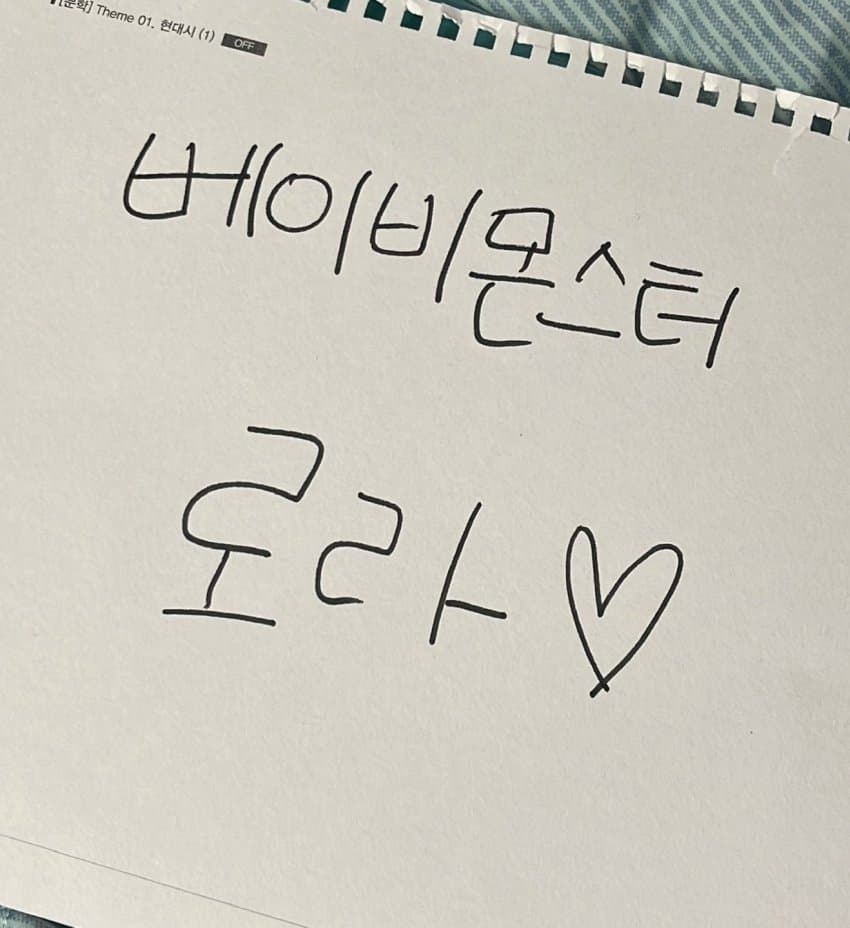 [문학] Theme 01. 현대시 (1) OFF
베이비몬스터
로라♡